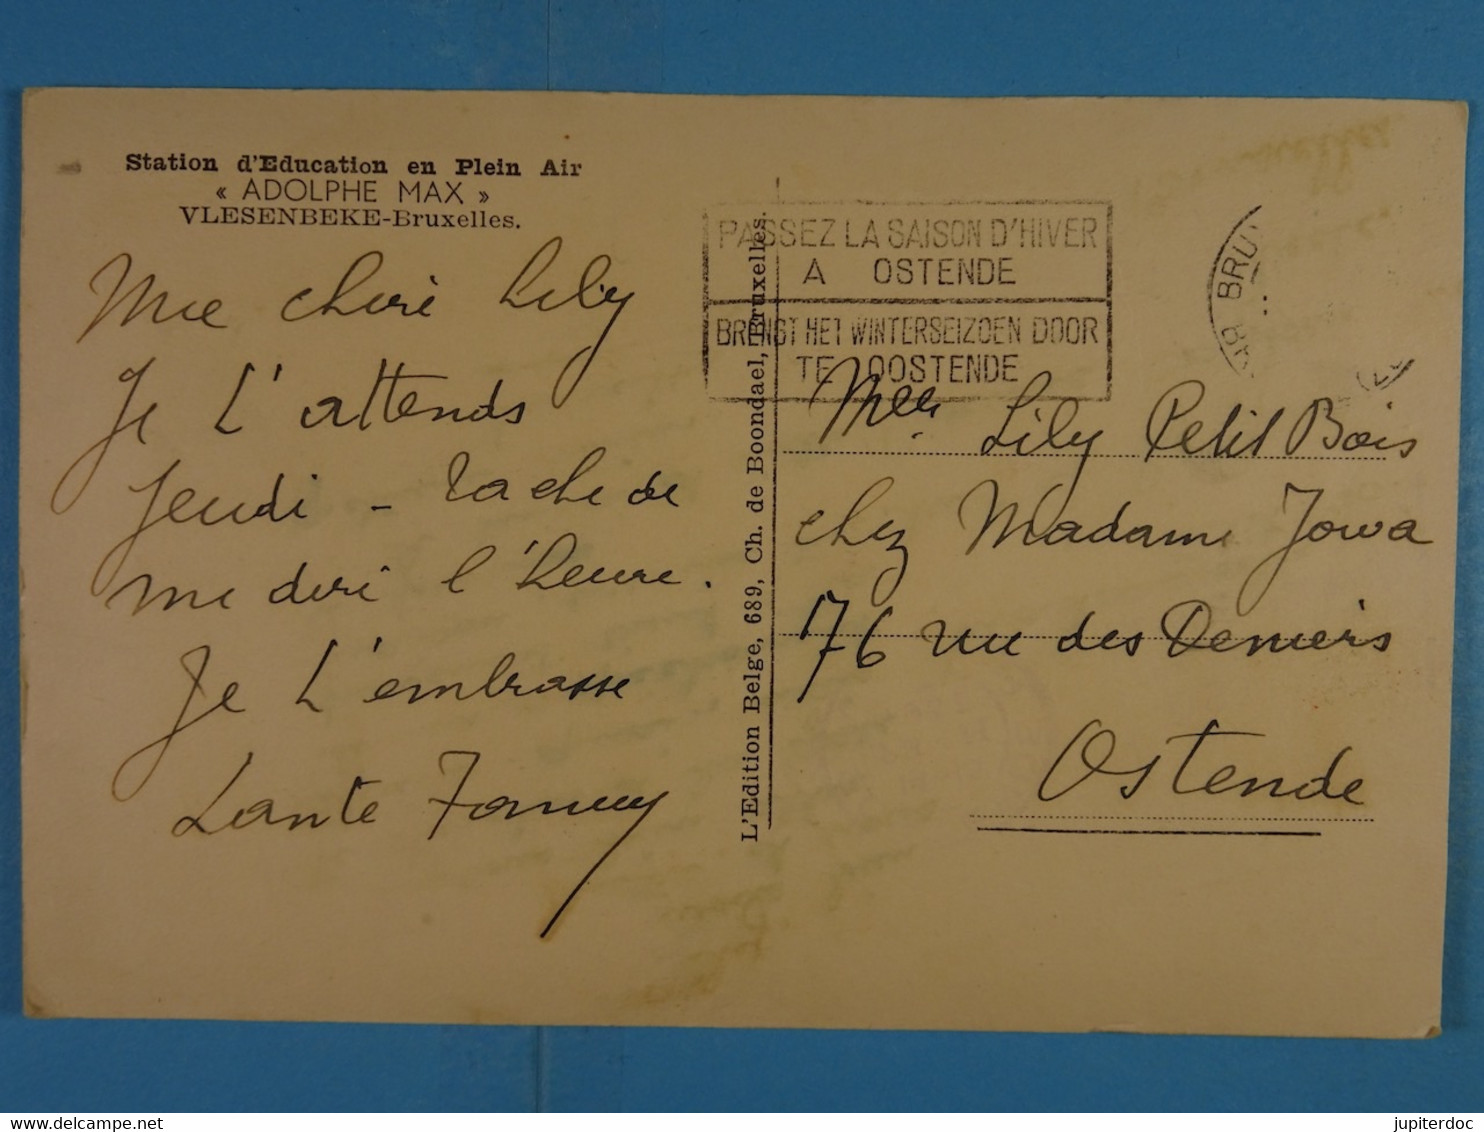 Station d'Education en Plein Air
« ADOLPHE MAX »
VLESENBEKE-Bruxelles.
Ma cheri Lily
Je t'attends
Jeudi - tache de
me dire l'heure.
Je t'embrasse
Tante Fanny
L'Edition Belge, 689, Ch. de Boondael, Bruxelles.
PASSEZ LA SAISON D'HIVER
A OSTENDE
BRENGT HET WINTERSEIZOEN DOOR
TE OOSTENDE
Melle Lily Petit Bois
chez Madame Jowa
76 rue des Deniers
Ostende
jupiterdoc
www.delcampe.net